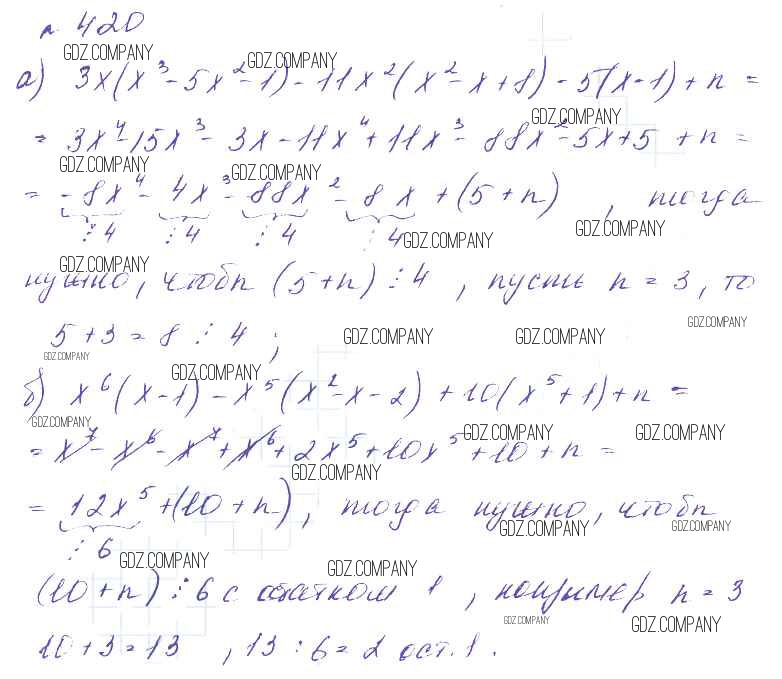 № 420
GDZ.COMPANY GDZ.COMPANY
а) 3x(x³ - 5x² - 1) - 11x²(x² - x + 8) - 5(x - 1) + n =
GDZ.COMPANY
= 3x⁴ - 15x³ - 3x - 11x⁴ + 11x³ - 88x² - 5x + 5 + n =
GDZ.COMPANY GDZ.COMPANY
= -8x⁴ - 4x³ - 88x² - 8x + (5 + n) , тогда
⋮ 4 ⋮ 4 ⋮ 4 ⋮ 4 GDZ.COMPANY GDZ.COMPANY
GDZ.COMPANY
нужно, чтобы (5 + n) ⋮ 4 , пусть n = 3, то
GDZ.COMPANY
5 + 3 = 8 ⋮ 4 ; GDZ.COMPANY GDZ.COMPANY
GDZ.COMPANY
GDZ.COMPANY
б) x⁶(x - 1) - x⁵(x² - x - 2) + 10(x⁵ + 1) + n =
GDZ.COMPANY GDZ.COMPANY GDZ.COMPANY
= x⁷ - x⁶ - x⁷ + x⁶ + 2x⁵ + 10x⁵ + 10 + n =
GDZ.COMPANY
= 12x⁵ + (10 + n), тогда нужно, чтобы
GDZ.COMPANY GDZ.COMPANY
⋮ 6 GDZ.COMPANY GDZ.COMPANY
(10 + n) ⋮ 6 с остатком 1 , например n = 3
GDZ.COMPANY GDZ.COMPANY
10 + 3 = 13 , 13 : 6 = 2 ост. 1 .